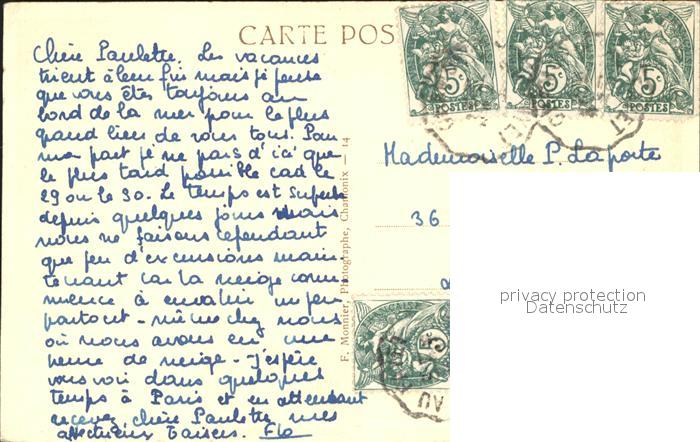 CARTE POS
Chère Paulette. Les vacances
tirent à leur fin mais je pense
que vous êtes toujours au
bord de la mer pour le plus
grand bien de vous tous. Pour
ma part je ne pars d'ici que
le plus tard possible cad le
29 ou le 30. Le temps est superbe
depuis quelques jours mais
nous ne faisons cependant
que peu d'excursions main
tenant car la neige com
mence à envahir un peu
partout - même chez nous
où nous avons eu une
heure de neige - J'espère
vous voir dans quelques
temps à Paris et en attendant
recevez chère Paulette mes
affectueux baisers. Flo
F. Monnier, Photographe, Chamonix — 14
5c POSTES
5c POSTES
5c POSTES
Mademoiselle P. Laporte
36
privacy protection
Datenschutz